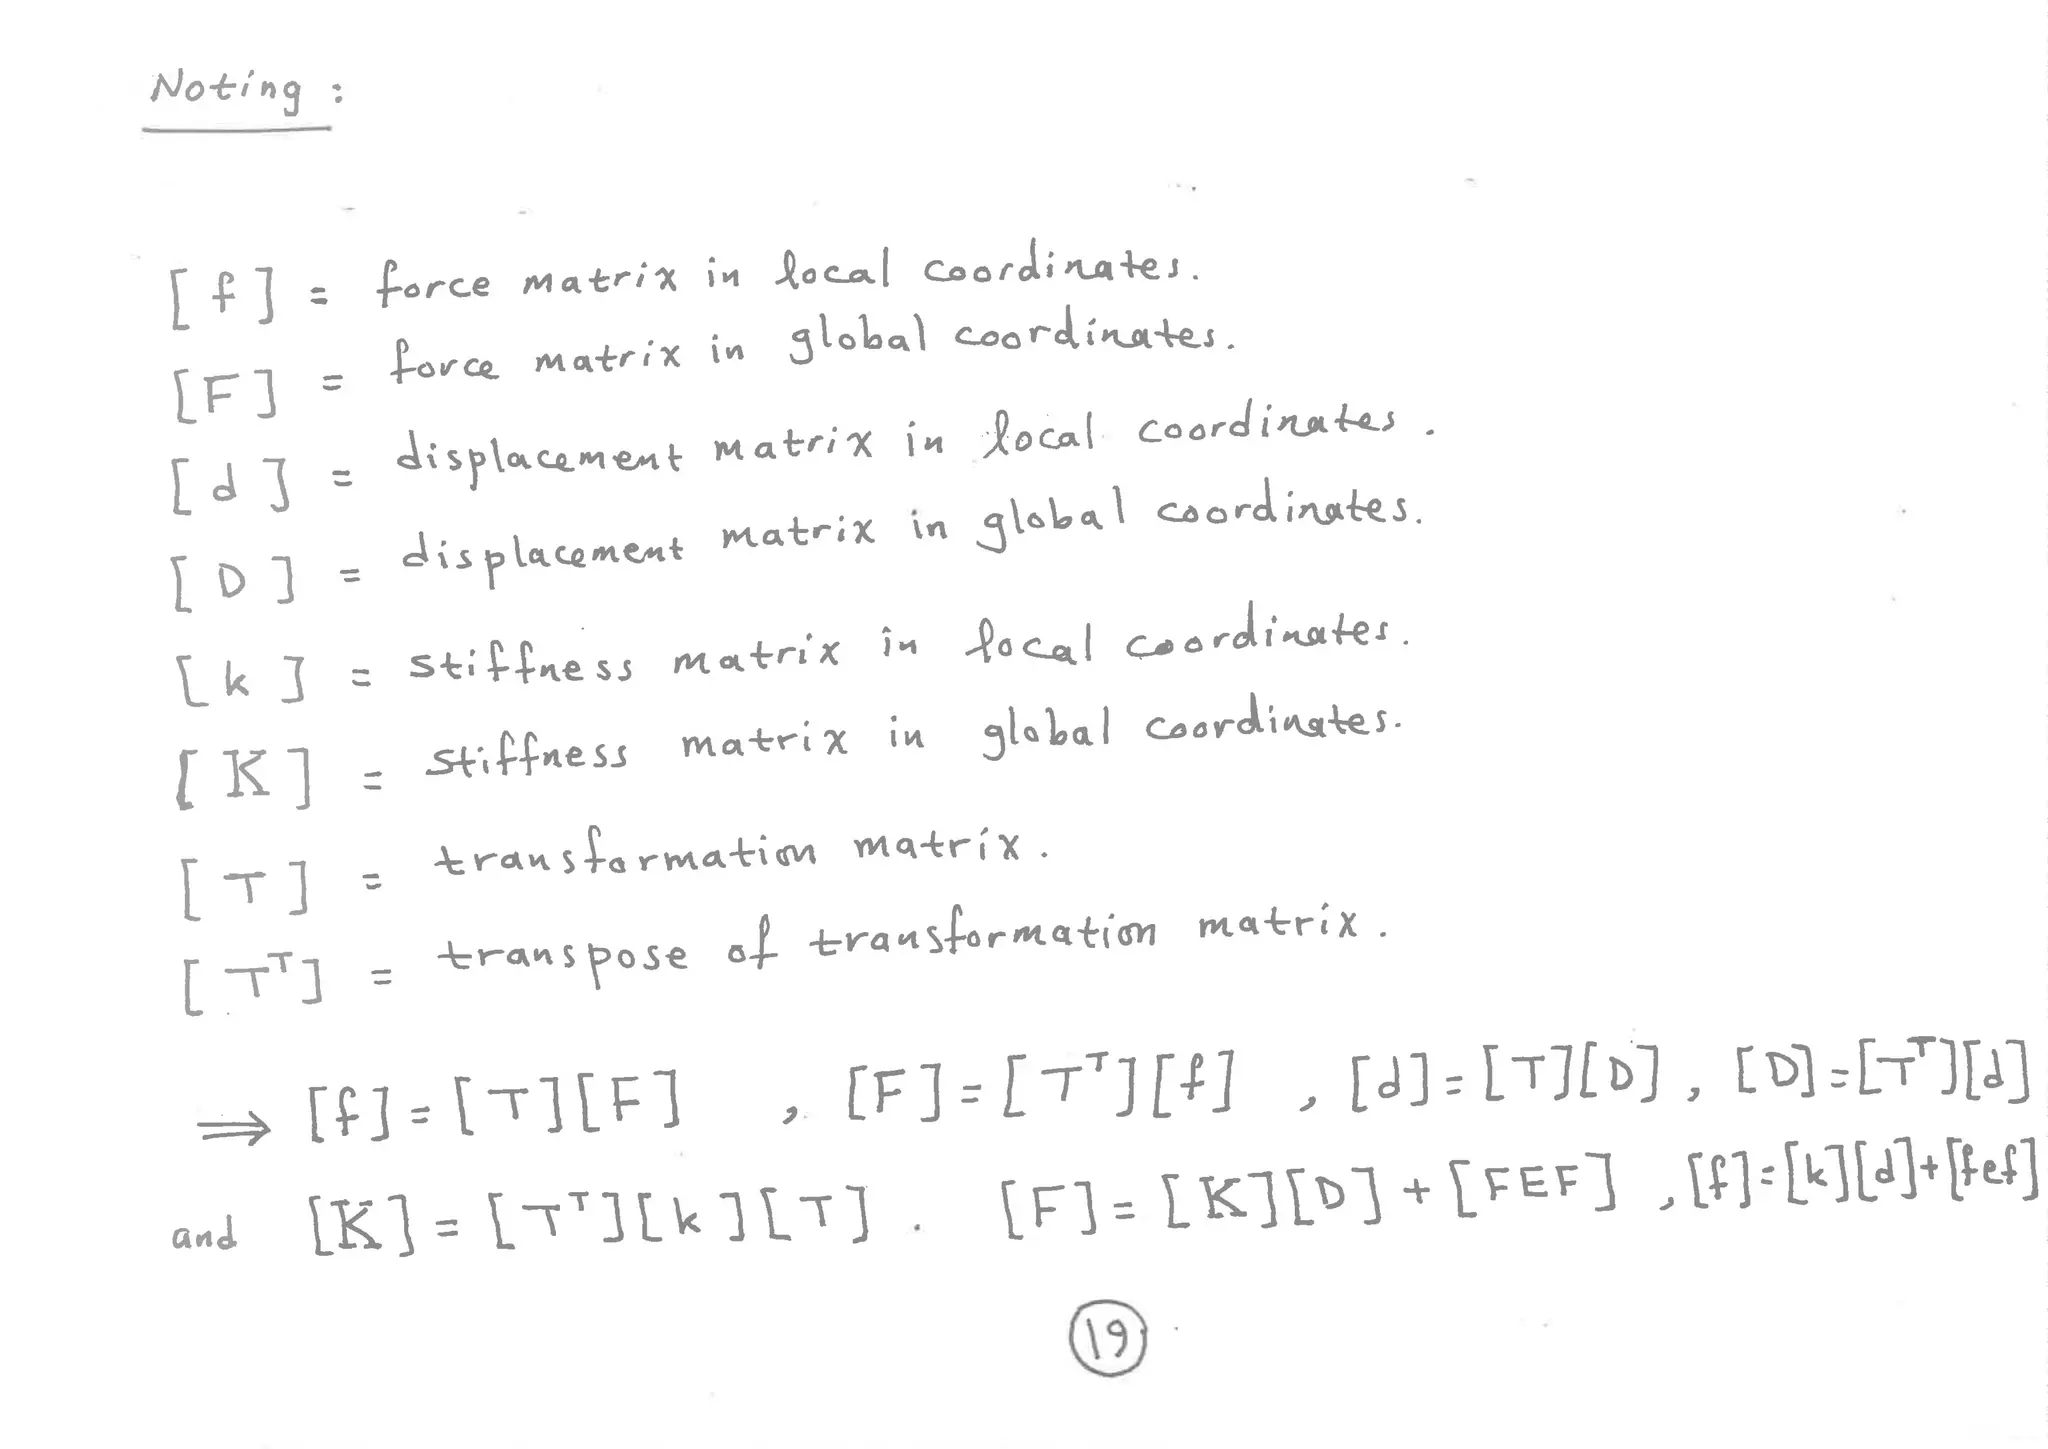 Noting :
[f] = force matrix in local coordinates.
[F] = force matrix in global coordinates.
[d] = displacement matrix in local coordinates.
[D] = displacement matrix in global coordinates.
[k] = stiffness matrix in local coordinates.
[K] = stiffness matrix in global coordinates.
[T] = transformation matrix.
[Tᵀ] = transpose of transformation matrix.
⇒ [f]=[T][F] , [F]=[Tᵀ][f] , [d]=[T][D] , [D]=[Tᵀ][d]
and [K]=[Tᵀ][k][T] . [F]=[K][D]+[FEF] , [f]=[k][d]+[fef]
19